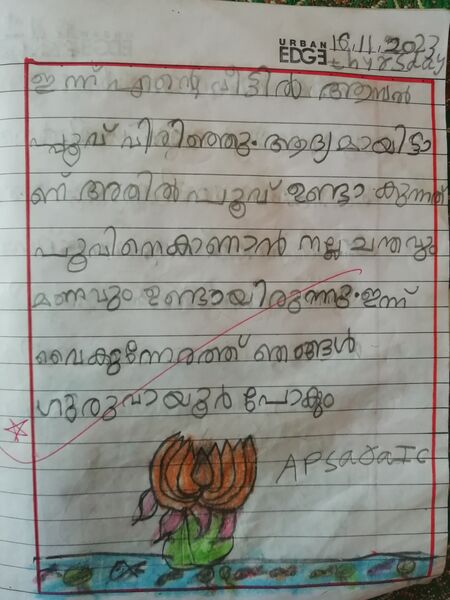 URBAN
EDGE
16.11.2023
thyrsday
ഇന്ന് എന്റെ വീട്ടിൽ ആമ്പൽ
പ്പൂവ് വിരിഞ്ഞു. ആദ്യമായിട്ടാ
ണ് അതിൽ പൂവ് ഉണ്ടാകുന്നത്
പൂവിനെകാണാൻ നല്ല ചന്തവും
മണവും ഉണ്ടായിരുന്നു. ഇന്ന്
വൈകുന്നേരത്ത് ഞങ്ങൾ
ഗുരുവായൂർ പോകും